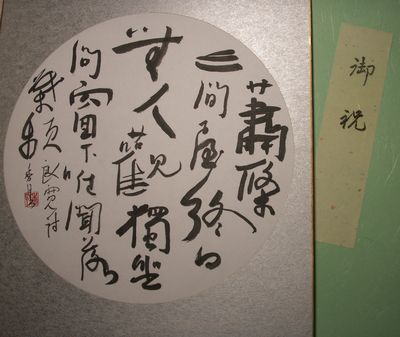 蕭條
三間屋終日
無人觀獨坐
間窗下唯聞落
葉頻 良寛詩
御祝